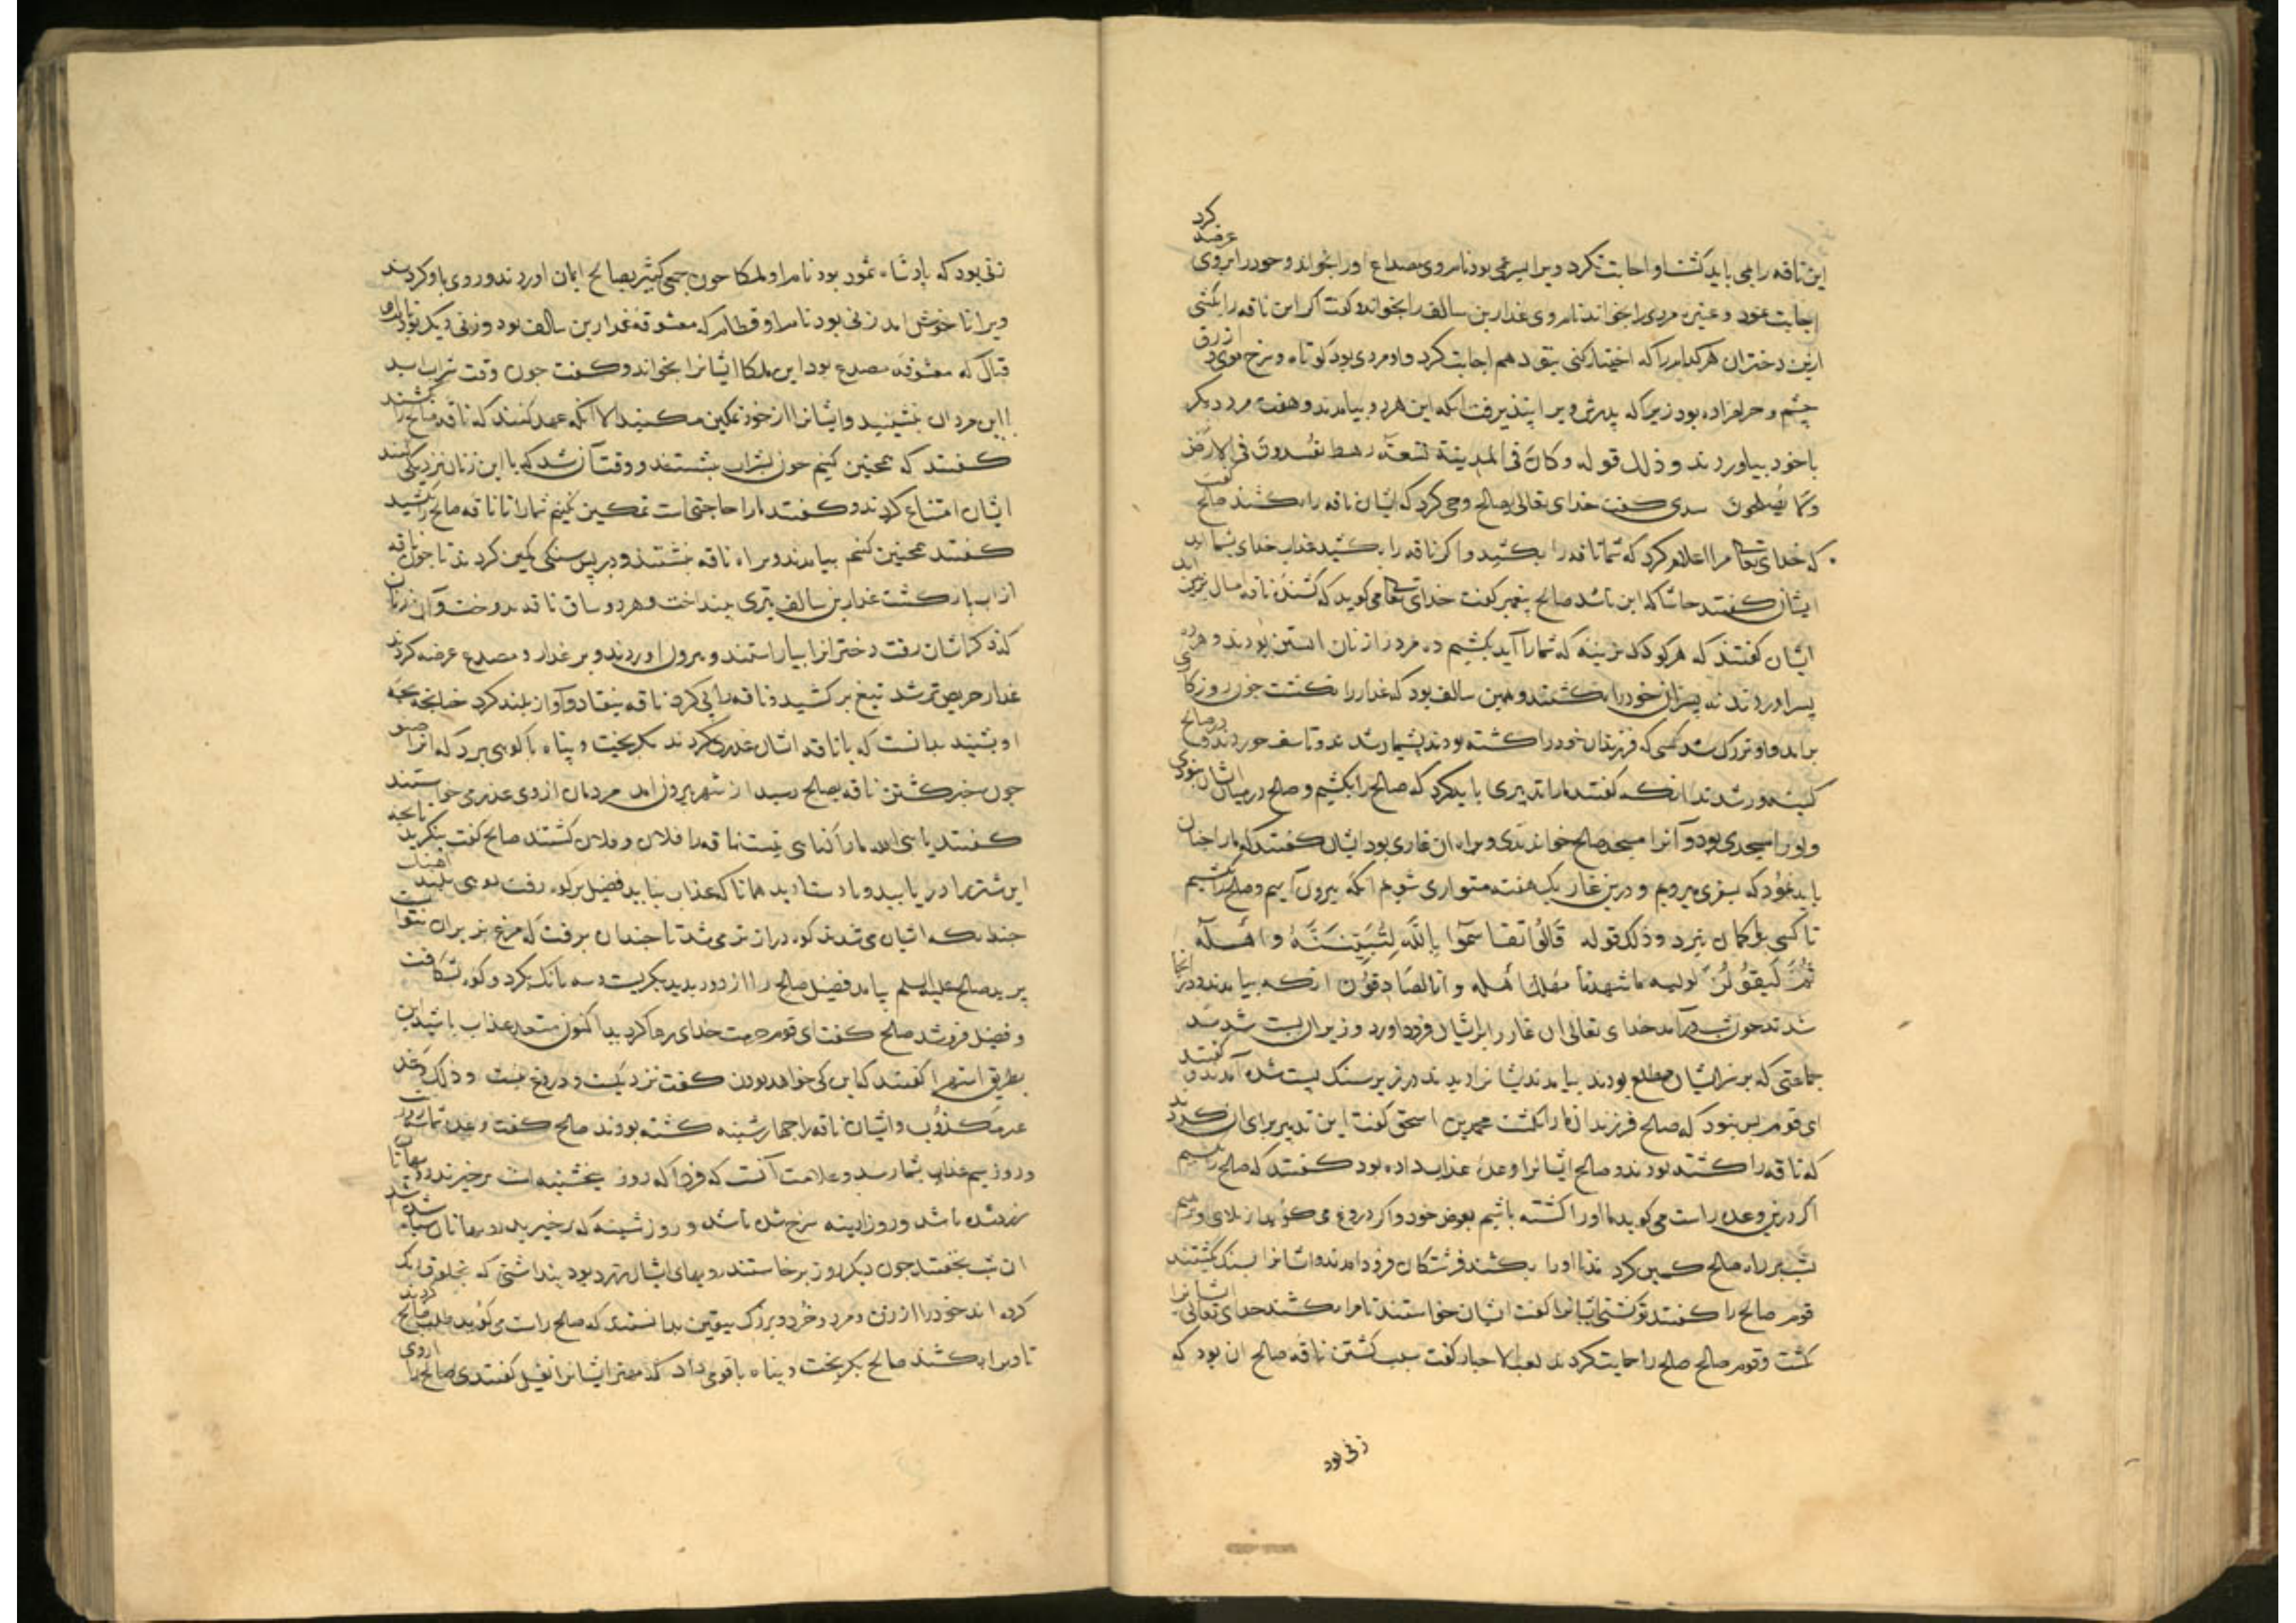 این ناقه را می باید کشت او اجابت نکرد ویرا پسر عمی بود نام وی مصداع اورا بخواند و خود را بروی عرضه کرد
اجابت نمود و عنیزه مردی را خواند نام وی غدار بن سالف را بخواند و گفت اگر این ناقه را بکشی
ازین دختران هر کدام را که اختیار کنی بتو دهم اجابت کرد و او مردی بود کوتاه و سرخ موی و ازرق
چشم و حرامزاده بود زیرا که پدرش ویرا نپذیرفت انکه این هر دو بیامدند و هفت مرد دیگر
باخود بیاوردند و ذلک قوله وکان فی المدینة تسعة رهط یفسدون فی الارض
ولا یصلحون سدی گفت خدای تعالی بصالح وحی کرد که ایشان ناقه را بکشند صالح گفت
که خدای تعالی مرا اعلام کرد که شما ناقه را بکشید و اگر ناقه را بکشید عذاب خدای بشما اید
ایشان گفتند حاشا که این باشد صالح پیغمبر گفت خدای تعالی می گوید که کشندۀ ناقه امسال بزمین اید
ایشان گفتند که هر کودک نرینه که شما را آید بکشیم ده مرد را زنان ابستن بودند و هر ده
پسر اوردند نه پسران خود را بکشتند و همین سالف بود که غدار را نکشت چون روزگاری
براند و او بزرگ شد کسی که فرزندان خود را کشته بودند پشیمان شدند و تاسف خوردند و بر صالح
کینه ور شدند انکه گفتند ما را تدبیری باید کرد که صالح را بکشیم و صالح در میان ایشان نبودی
و اورا مسجدی بود و آنرا مسجد صالح خواندندی و براه ان غاری بود ایشان گفتند که ما را چنان
باید نمود که بسفری میرویم و درین غار یک هفته متواری شویم انکه بیرون آییم و صالح را بکشیم
تا کسی بر ما گمان نبرد و ذلک قوله قَالُوا تَقَاسَمُوا بِاللَّهِ لَنُبَيِّتَنَّهُ وَأَهْلَهُ
ثُمَّ لَنَقُولَنَّ لولیه ما شهدنا مهلک أهله وانا لصادقون انکه بیامدند و در انجا
شدند چون شب درآمد خدای تعالی ان غار را بر ایشان فرود اورد و زیر ان پست شدند
جماعتی که بر سر ایشان مطلع بودند بیامدند ایشانرا دیدند در زیر سنگ پست شده آمدند و گفتند
ای قوم بس نبود که صالح فرزندان ما را بکشت محمد بن اسحق گفت این تدبیر برای ان کردند
که ناقه را کشته بودند و صالح ایشانرا وعدۀ عذاب داده بود گفتند که صالح را بکشیم
اگر درین وعده راست می گوید ما اورا کشته باشیم بعوض خود و اگر دروغ می گوید از بلای او برهیم
شب بر راه صالح کمین کردند تا اورا بکشند فرشتگان فرود امدند و ایشانرا بسنگ بکشتند
قوم صالح را گفتند تو کشتی ایشانرا گفت ایشان خواستند تا مرا بکشند خدای تعالی ایشانرا
بکشت و قوم صالح صالح را حمایت کردند کعب الاحبار گفت سبب کشتن ناقه صالح ان بود که
زنی بود
زنی بود که پادشاه ثمود بود نام او ملکا چون جمعی کثیر بصالح ایمان اوردند و روی باو کردند
ویرا ناخوش امد زنی بود نام او قطام که معشوقه غدار بن سالف بود و زنی دیگر بود نام او
قبال که معشوقه مصدع بود این ملکا ایشانرا بخواند و گفت چون وقت شراب اید
با این مردان بنشینید و ایشانرا از خود تمکین مکنید الا انکه عهد کنند که ناقه صالح را بکشند
گفتند که همچنین کنیم چون بشراب بنشستند و وقت آن شد که با این زنان نزدیکی کنند
ایشان امتناع کردند و گفتند ما را حاجتی است تمکین نکنیم شما را تا ناقه صالح را نکشید
گفتند همچنین کنیم بیامدند و براه ناقه بنشستند و در پس سنگی کمین کردند تا چون ناقه
از اب بازگشت غدار بن سالف تیری بینداخت و هر دو ساق ناقه بدوخت و آن زنان
که ذکر شان رفت دخترانرا بیاراستند و بیرون اوردند و بر غدار و مصدع عرضه کردند
غدار حریص تر شد تیغ برکشید و ناقه را پی کرد ناقه بیفتاد و آواز بلند کرد چنانچه بچه
او بشنید بدانست که با ناقه ایشان غدر کردند بگریخت و پناه با کوهی برد که انرا صنو
چون خبر کشتن ناقه بصالح رسید از شهر بیرون امد مردمان از وی عذر می خواستند
گفتند یا نبی الله ما را گناهی نیست ناقه را فلان و فلان کشتند صالح گفت بنگرید تا بچه
این شتر را دریابید و با دست ارید همانا که عذاب نیاید فصیل بر کوه رفت کوهی بلند اهنک
چندانکه ایشان می شدند کوه دراز تر می شد تا چندان برفت که مرغ بر پران نتوانست
پرید صالح علیه السلم بیامد فصیل صالح را از دور بدید بگریست و سه بانگ بکرد و کوه بشکافت
و فصیل فرو شد صالح گفت ای قوم حرمت خدای رها کردید اکنون مستعد عذاب باشید این
بطریق استهزا گفتند که این کی خواهد بودن گفت نزدیکست و دروغ نیست و ذلک وعد
غیر مکذوب و ایشان ناقه را چهارشنبه کشته بودند صالح گفت وعدۀ شما سه روز
و روز سیم عذاب بشما رسد و علامت آنست که فردا که روز پنجشنبه است برخیزند رویهاتان
زرد شده باشد و روز ادینه سرخ شده باشد و روز شنبه که برخیزید رویهاتان سیاه شده باشد
ان شب بخفتند چون دیگر روز برخاستند رویهای ایشان زرد بود پنداشتی که بخلوق رنگ
کرده اند خود را از زن و مرد و خرد و بزرگ بیقین بدانستند که صالح راست می گوید طلب صالح کردند
تا ویرا بکشند صالح بگریخت و پناه با قومی داد که مهتر ایشانرا نفیل گفتندی صالح را از وی